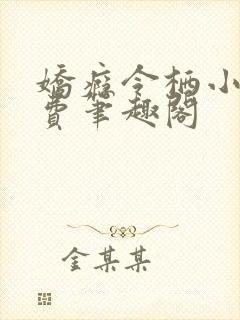 嬌癮令栖小
費筆趣閣
金某某